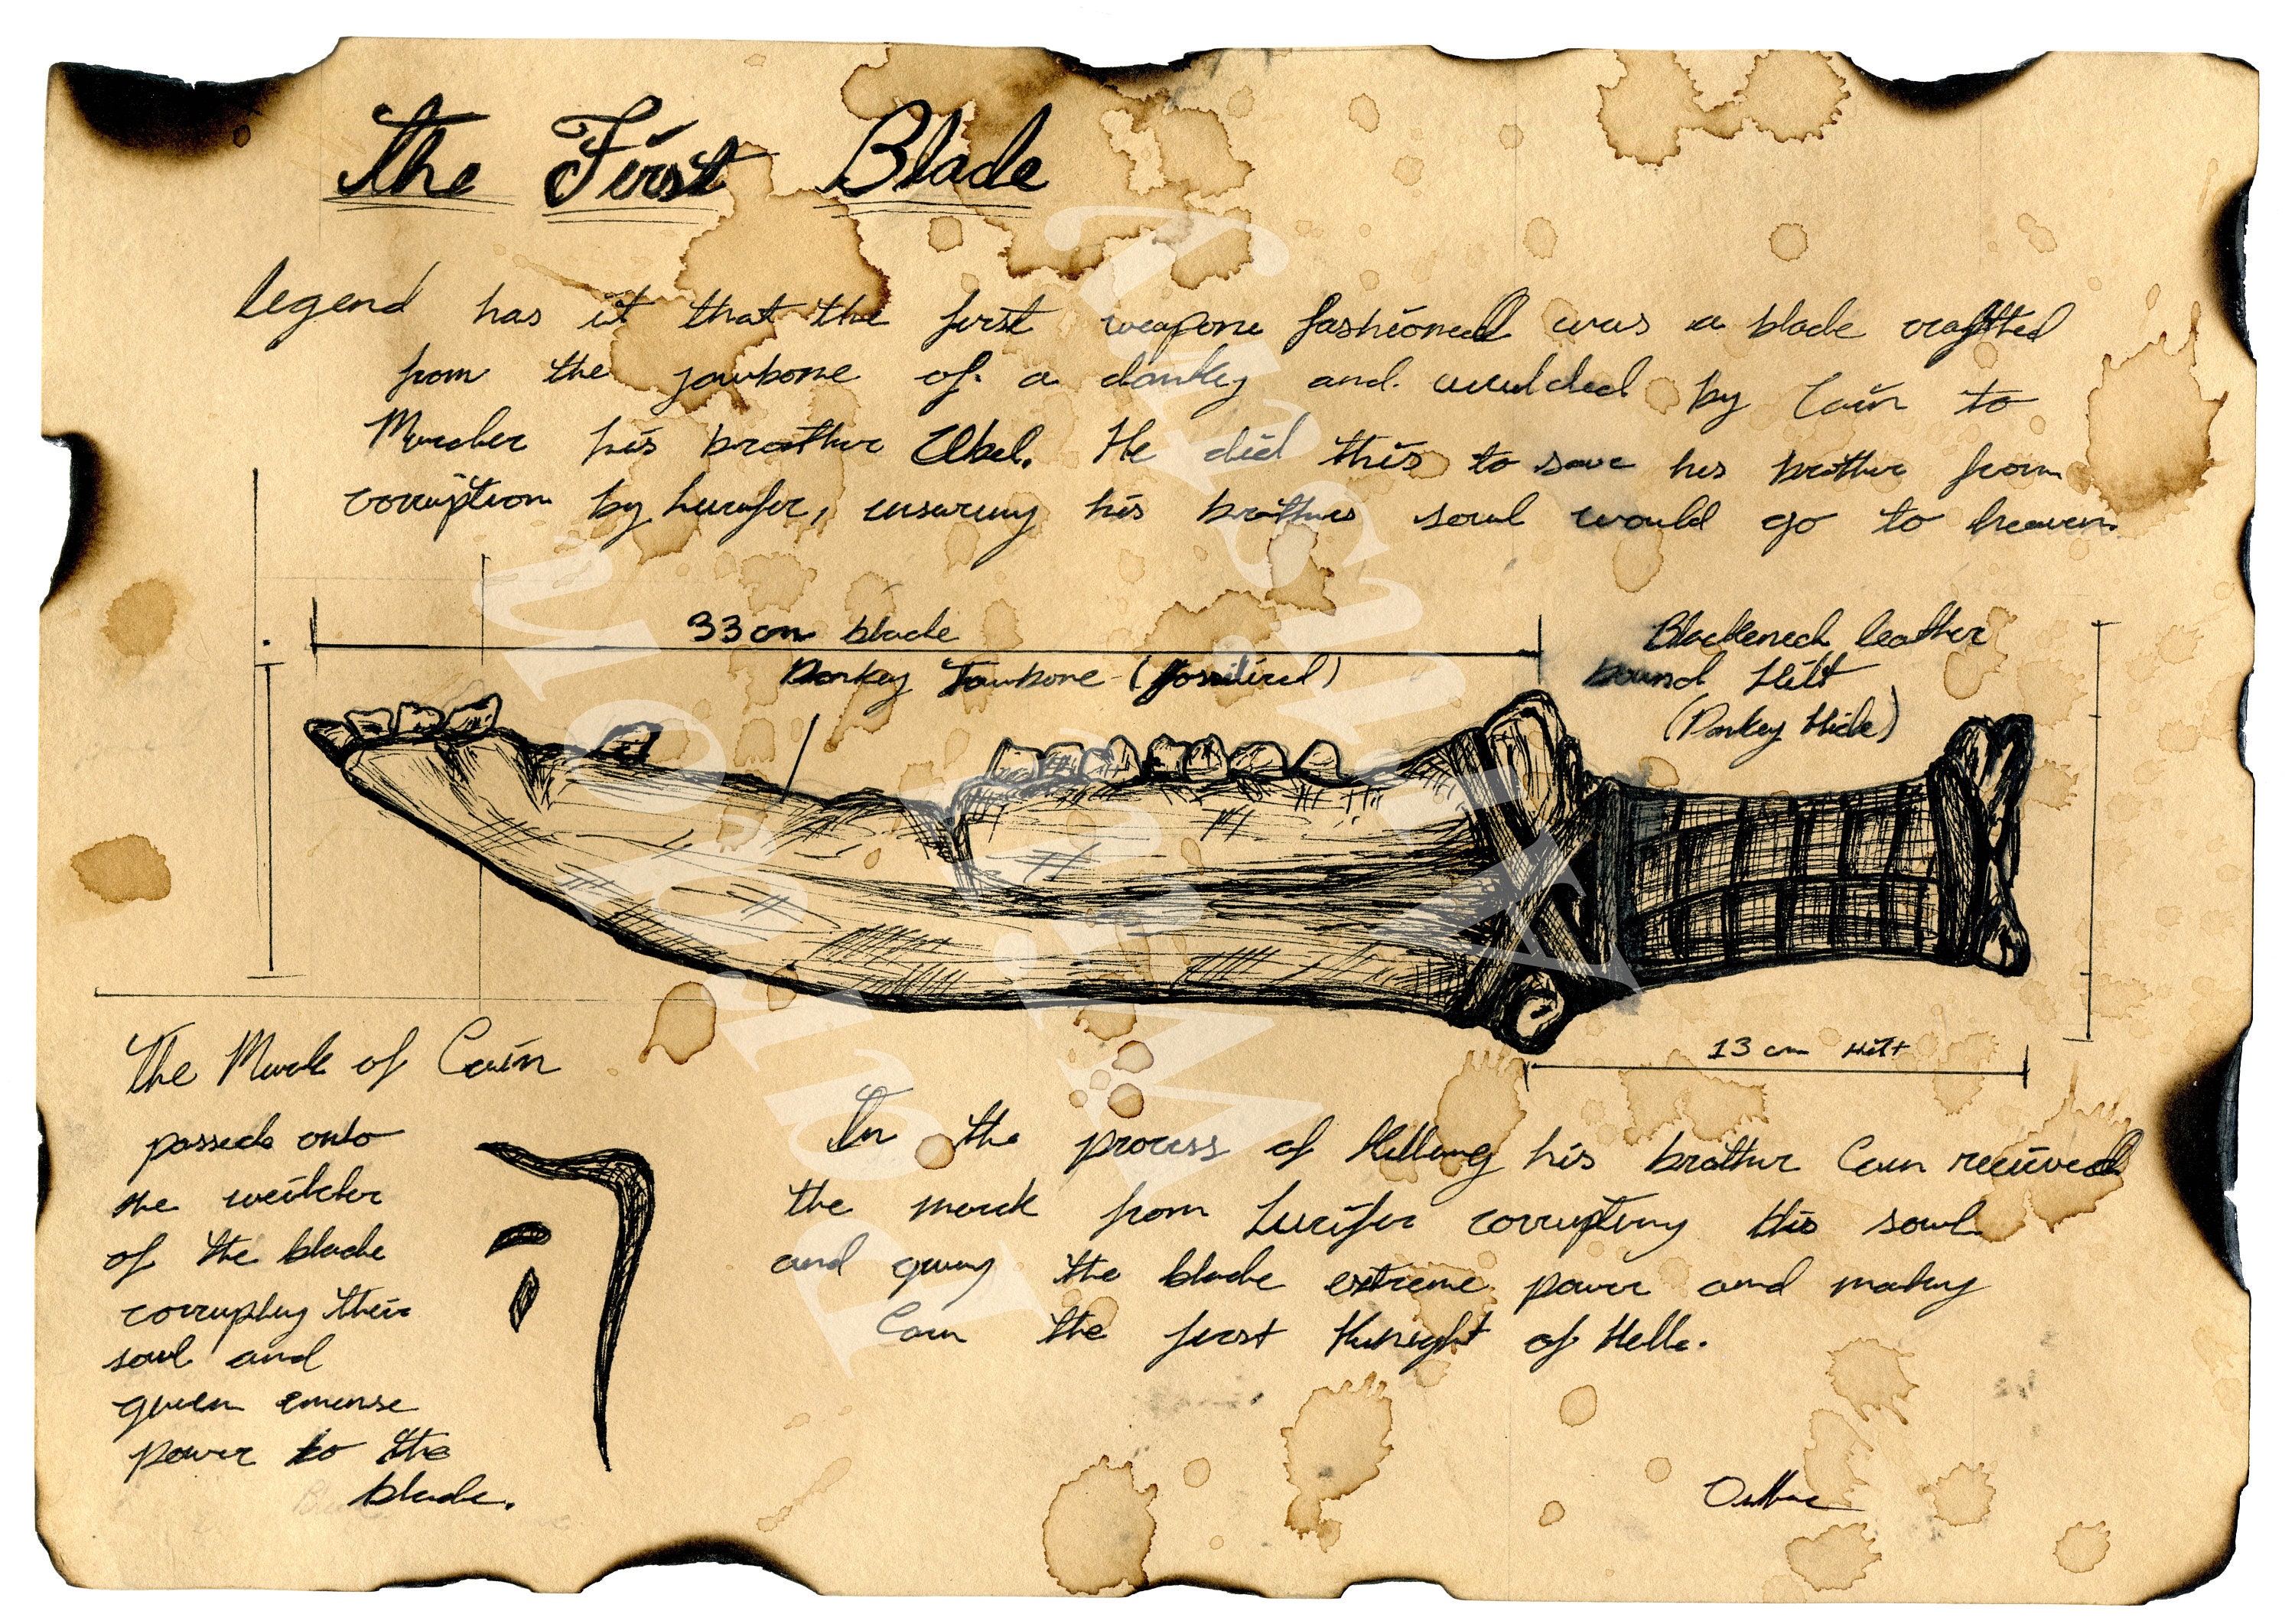 The First Blade
Legend has it that the first weapone fashioned was a blade crafted
from the jawbone of a donkey and weilded by Cain to
Murder his brother Abel. He did this to save his brother from
corruption by Lucifer, ensuring his brothers soul would go to heaven.
33cm blade
Donkey Jawbone (fossilized)
Blackened leather
bound Hilt
(Donkey Hide)
13 cm Hilt
The Mark of Cain
passed onto
the weilder
of the blade
corrupting their
soul and
given emense
power to the
blade.
In the process of Killing his brother Cain recieved
the mark from Lucifer corrupting his soul
and giving the blade extreme power and making
Cain the first Knight of Hell.